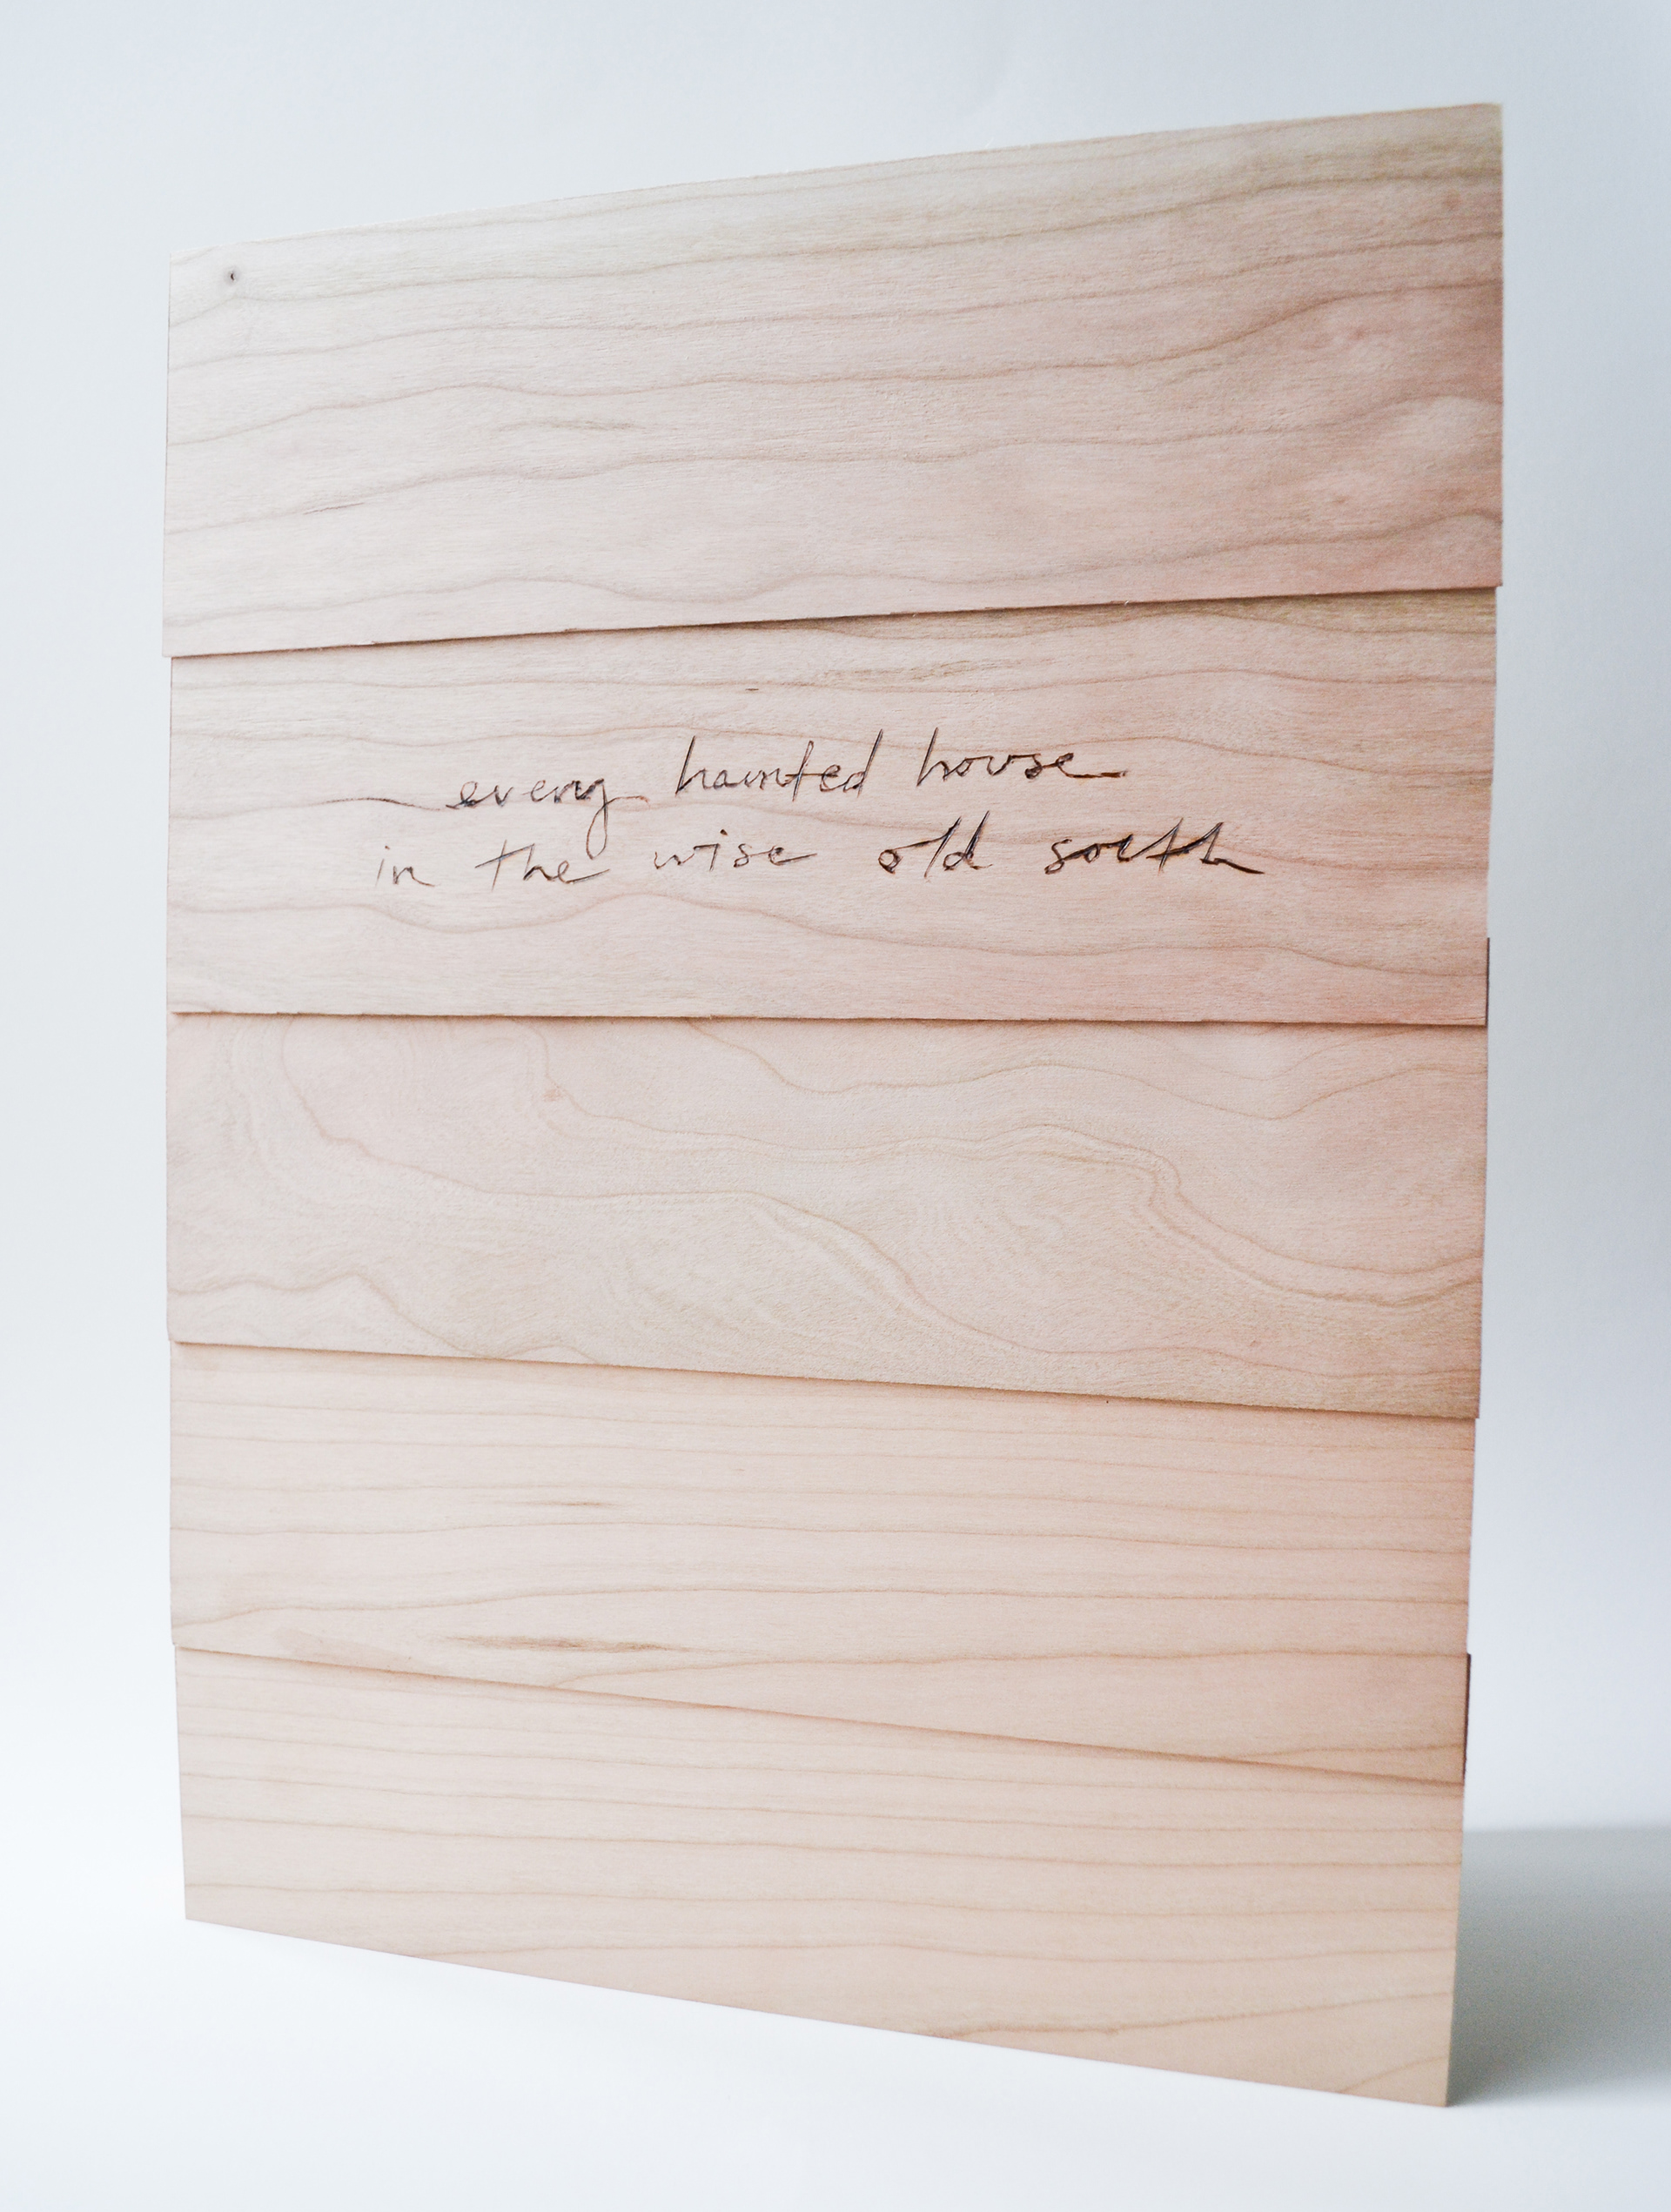 every haunted house
in the wise old south